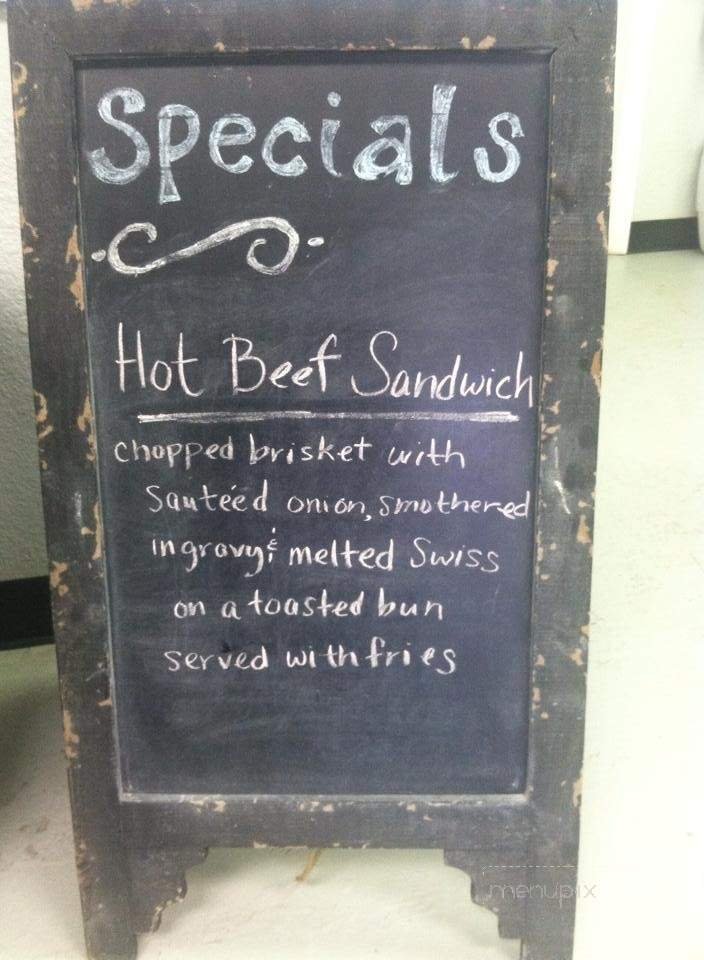 Specials
Hot Beef Sandwich
chopped brisket with
sauteéd onion, smothered
in gravy & melted Swiss
on a toasted bun
served with fries
menupix